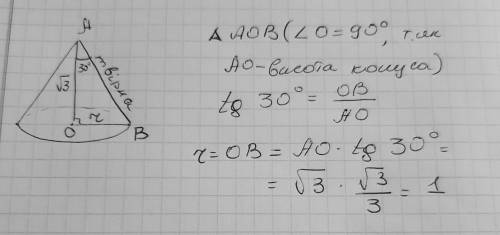 A
30°
√3
твірна
O
r
B
Δ AOB (∠O = 90°, т.як
AO - висота конуса)
tg 30° = OB / AO
r = OB = AO · tg 30° =
= √3 · √3 / 3 = 1